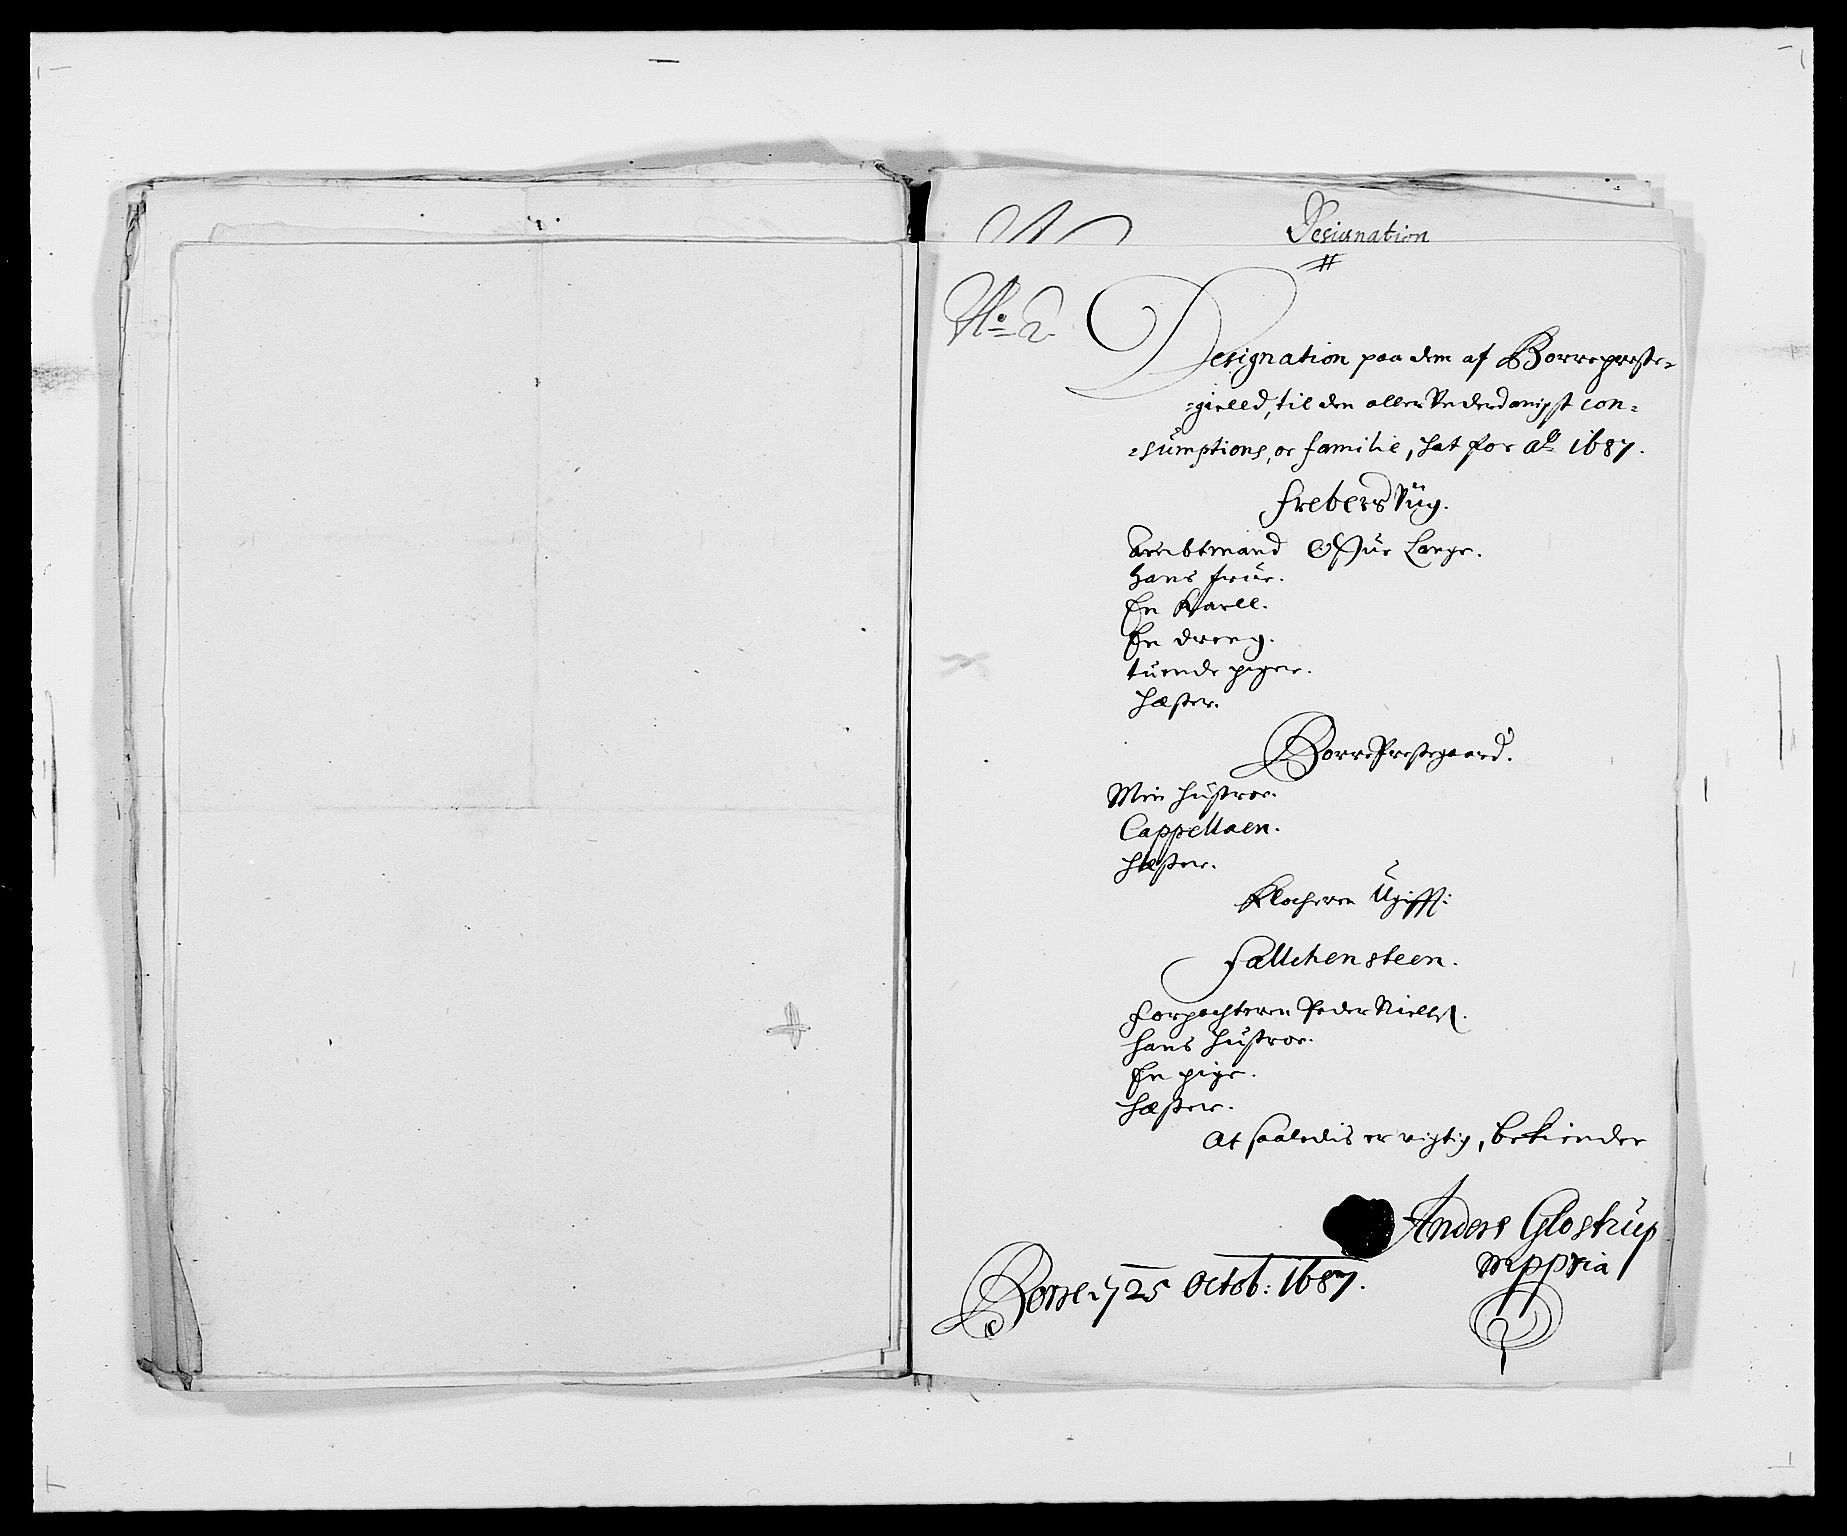 Designation
No 2
Designation paa dem af Borre preste-
-gielld, til den aller Underdanigst con-
-sumptions, oc familie, Sat for Ao 1687.
Ambtmand Ofüe Lange.
Hans früe.
En Karll.
En dreng.
tuende piger.
Hæster.
Borre Prestegaard.
Min Hüstroe.
Cappellaen.
Hæster.
Klocheren Ügifft:
Falchensteen.
Forpachteren Peder Niels
Hans Hüstroe.
En pige.
Hæster.
At saaledis er rigtig, bekiender
Anders Glostrüp
Mppria
Borre 25 Octob: 1687.